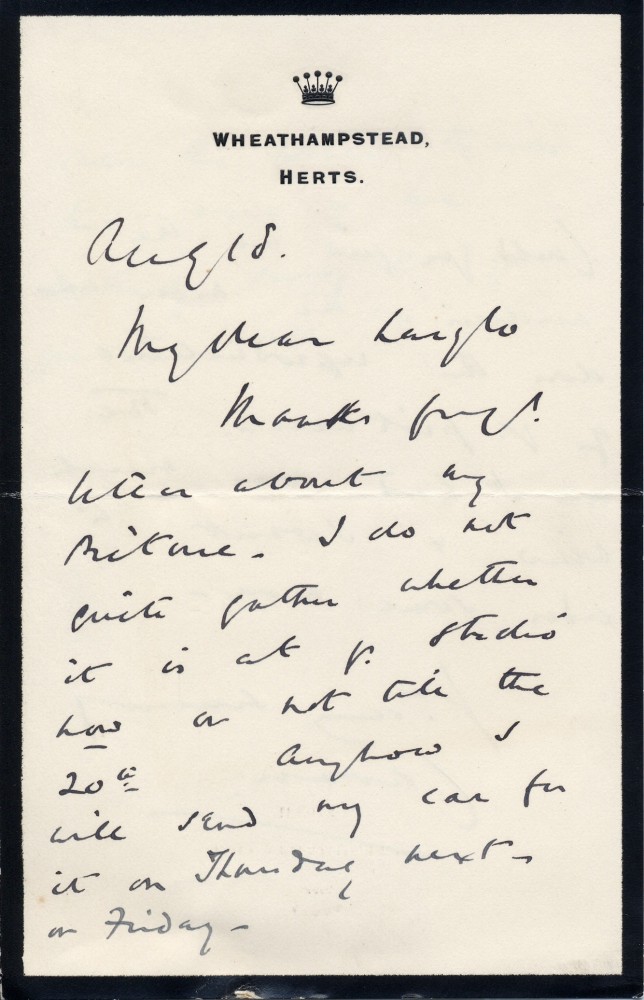 WHEATHAMPSTEAD,
HERTS.
Aug 18.
My dear Laszlo
Thanks for yr
letter about my
Picture. I do not
quite gather whether
it is at yr. Studio
now or not till the
20th Anyhow I
will send my car for
it on Thursday next -
or Friday -